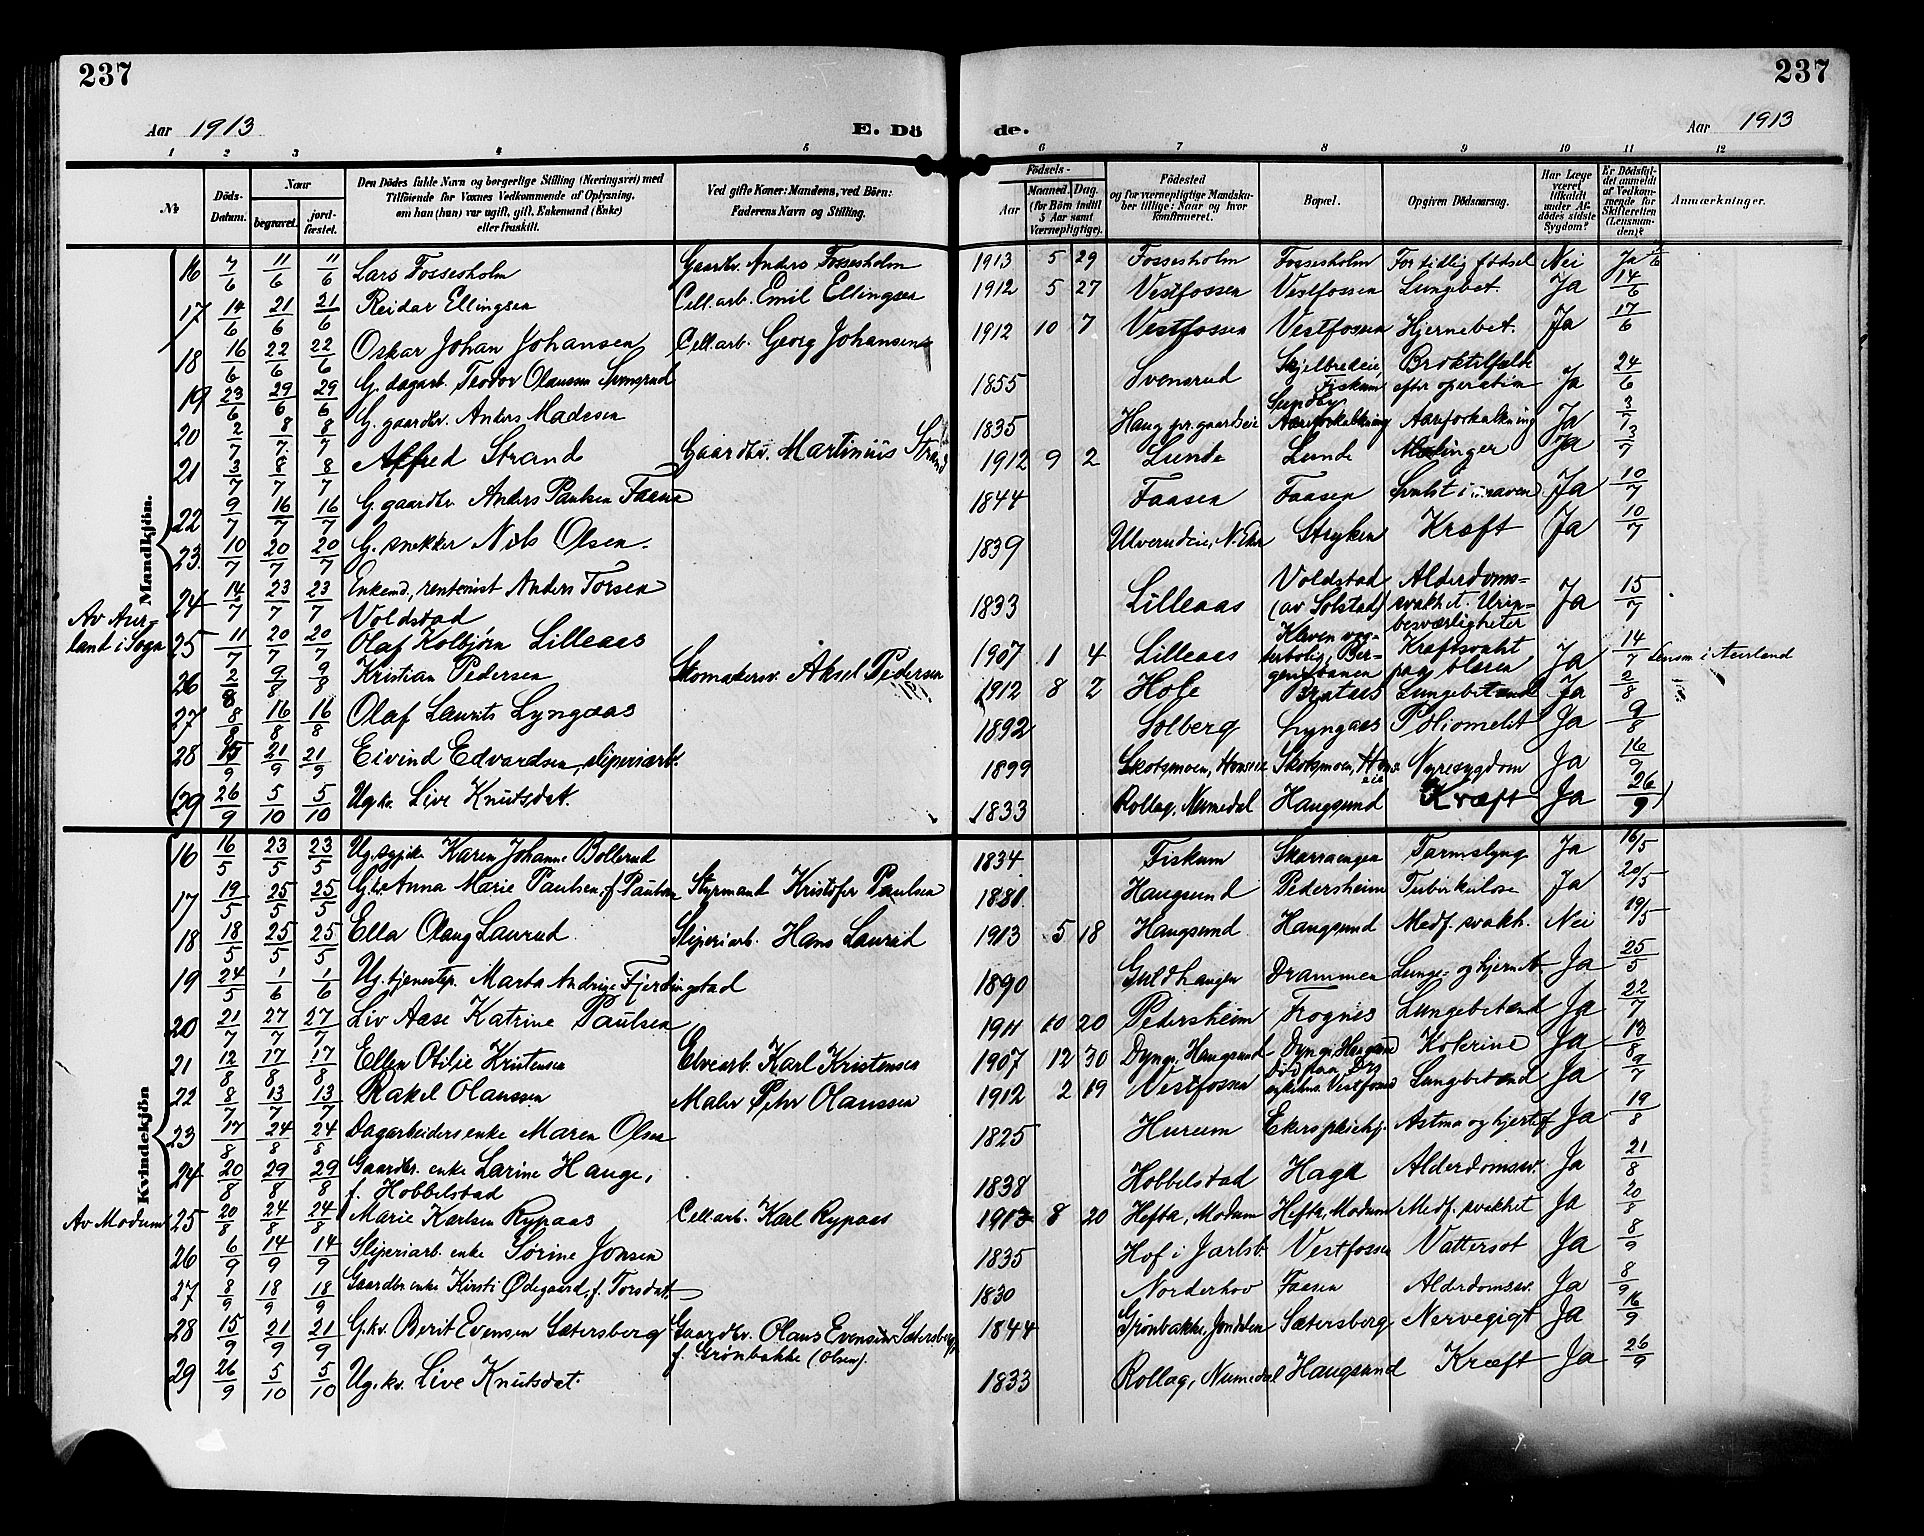 237
237
Aar 1913
E. Dö
de.
Aar 1913
1 2 3 4 5 6 7 8 9 10 11 12
№
Döds-Datum.
Naar
begravet.
jord-fæstet.
Den Dödes fulde Navn og borgerlige Stilling (Næringsvei) med
Tilföiende for Voxnes Vedkommende af Oplysning,
om han (hun) var ugift, gift, Enkemand (Enke)
eller fraskilt.
Ved gifte Koner: Mandens, ved Börn:
Faderens Navn og Stilling.
Födsels-
Aar
Maaned. Dag.
(for Börn indtil 5 Aar samt Værnepligtige).
Födested
og for værnepligtige Mandska-
ber tillige: Naar og hvor
konfirmeret.
Bopæl.
Opgiven Dödsaarsag.
Har Læge været tilkaldt under Afdödes sidste Sygdom?
Er Dödsfaldet anmeldt af Vedkommende for Skifteretten (Lensmanden)?
Anmærkninger.
Mandkjön.
16 7/6 11/6 11/6 Lars Fossesholm Gaardbr. Anders Fossesholm 1913 5 29 Fossesholm Fossesholm For tidlig fødsel Nei Ja
17 14/6 21/6 21/6 Reidar Ellingsen Cell.arb. Emil Ellingsen 1912 5 27 Vestfossen Vestfossen Lungebet. Ja 14/6
18 16/6 22/6 22/6 Oskar Johan Johansen Cell.arb. Georg Johansen 1912 10 7 Vestfossen Vestfossen Hjernebet. Ja 17/6
19 23/6 29/6 29/6 G. dagarb. Teodor Olaussen 1855 Svensrud Skjelbredeie, Fiskum efter operation Ja 24/6
20 2/7 8/7 8/7 G. gaardbr. Anders Madesen 1835 Haug pr. gaard Sundby Aareforkalkning Aareforkalkning Ja 3/7
21 3/7 8/7 8/7 Alfred Strand Gaardbr. Martinius Strand 1912 9 2 Lunde Lunde Ja 3/7
22 9/7 16/7 16/7 G. gaardbr Anders Paulsen Faasen 1844 Faasen Faasen i maven Ja 10/7
23 10/7 20/7 20/7 G. snekker Nils Olsen. 1839 Ulverudeie, N. Eker Stryken Kræft Ja 10/7
24 14/7 23/7 23/7 Enkemd, rentenist Anders Torsen Voldstad 1833 Lilleaas Voldstad (av Solstad) Alderdoms-svakhet. Urin-besværligheter Ja 15/7
Av Aur-
land i Sogn
25 11/7 20/7 20/7 Olaf Kolbjørn Lilleaas 1907 1 4 Lilleaas Kleven vog-terbolig, Ber-gensbanen Kræftsvulst paa blæren Ja 14/7 Lensm i Aurland
26 2/8 9/8 9/8 Kristian Pedersen Skomakersv. Aksel Pedersen 1912 8 2 Hole Brataas Lungebetænd Ja 2/8
27 8/8 16/8 16/8 Olaf Laurits Lyngaas 1892 Solberg Lyngaas Poliomelit Ja 9/8
28 15/9 21/9 21/9 Eivind Edvardsen, sliperiarb. 1899 Skotsmoen, Honseie Skotsmoen, Honseie Nyresygdom Ja 16/9
(29 26/9 5/10 5/10 Ug. kv. Live Knutsdat. 1833 Rollag, Numedal Haugsund Kræft Ja 26/9)
Kvindekjön
16 16/5 23/5 23/5 Ug. Karen Johanne Bollerud 1834 Fiskum Skarraengen Tarmslyng Ja 16/5
17 19/5 25/5 25/5 Anna Marie Paulsen, f. Paulsen Styrmand Kristofer Paulsen 1881 Haugsund Pedersheim Tuberkulose Ja 20/5
18 18/5 25/5 25/5 Ella Olaug Laurud Sliperiarb. Hans Laurud 1913 5 18 Haugsund Haugsund Medf. svakh. Nei 19/5
19 24/5 1/6 1/6 Ug. tjenestep. Marta Andrine Fjerdingstad 1890 Guldhaugen Drammen Lunge- og hjernet. Ja 25/5
20 21/7 27/7 27/7 Liv Aase Katrine Paulsen 1911 10 20 Pedersheim Frognes Lungebetænd Ja 22/7
21 12/8 17/8 17/8 Ellen Otilie Kristensen Elvearb. Karl Kristensen 1907 12 30 Dynge, Haugsund Dynge, Haugsund Kolerine Ja 13/8
22 8/7 13/7 13/7 Rakel Olaussen Maler Peter Olaussen 1912 2 19 Vestfossen Død paa Drs sykehus. Vestfossen Lungebetænd Ja 9/7
23 17/8 24/8 24/8 Dagarbeiders enke Maren Olsen 1825 Hurum Ekers pleiehj. Astma og hjertef. Ja 19/8
24 20/8 29/8 29/8 Gaardbr. enke Larine Hauge, f. Hobbelstad 1838 Hobbelstad Haga Alderdomssv. Ja 21/8
Av Modum
25 20/8 24/8 24/8 Marie Karlsen Rypaas Cell.arb. Karl Rypaas 1913 8 20 Hefta, Modum Hefta, Modum Medf. svakhet Ja 20/8
26 6/9 14/9 14/9 Sliperiarb. enke Sørine Jonsen 1835 Hof i Jarlsb. Vestfossen Vattersot Ja 8/9
27 8/9 18/9 18/9 Gaardbr. enke Kirsti Ødegaard, f. Torsdat. 1830 Norderhov Faasen Alderdomssv. Ja 8/9
28 15/9 21/9 21/9 G. kv. Berit Evensen Sætersberg Gaardbr. Olaus Evensen Sætersberg f. Grønbakke (Olsen). 1844 Grønbakke, Jondalen Sætersberg Nervegigt Ja 16/9
29 26/9 5/10 5/10 Ug. kv. Live Knutsdat. 1833 Rollag, Numedal Haugsund Kræft Ja 26/9